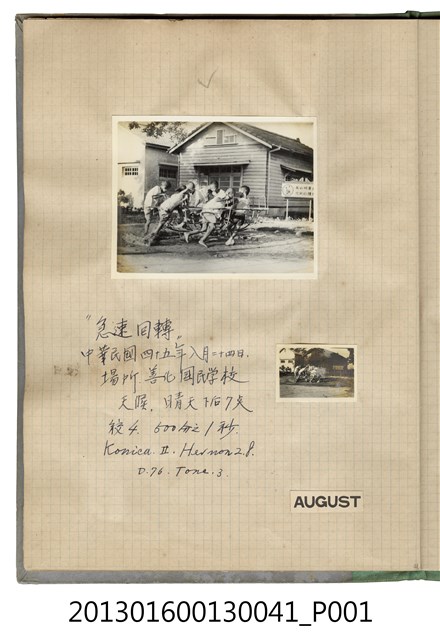 "急速回轉"
中華民國四十五年八月二十四日.
場所 善化國民學校
天候. 晴天下后7点
絞4. 500分之1秒.
Konica. II. Hernon 2.8.
D.76. Tone. 3.
AUGUST
201301600130041_P001